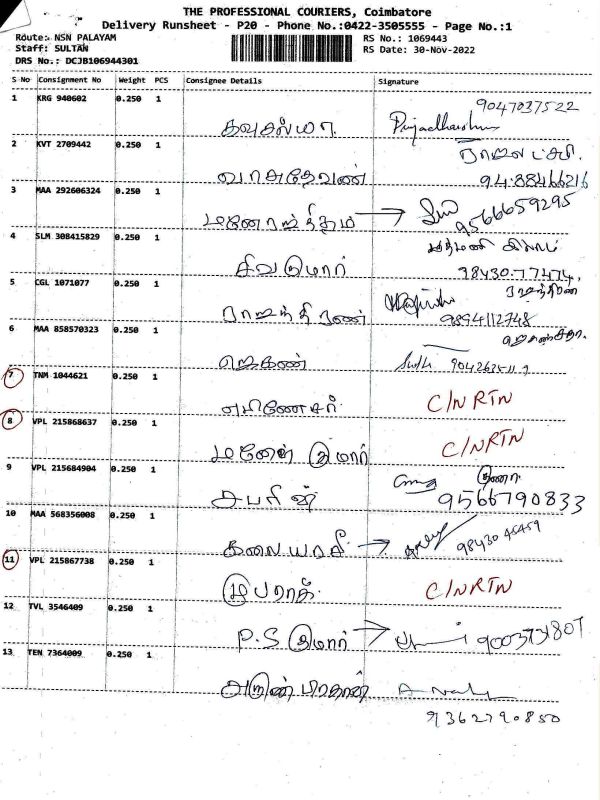 THE PROFESSIONAL COURIERS, Coimbatore
Delivery Runsheet - P20 - Phone No.:0422-3505555 - Page No.:1
Route: NSN PALAYAM
Staff: SULTAN
DRS No.: DCJB106944301
RS No.: 1069443
RS Date: 30-Nov-2022
S No Consignment No Weight PCS Consignee Details Signature
1 KRG 940602 0.250 1
9047037522
2 KVT 2709442 0.250 1
வாசுதேவன் 94.88466216
3 MAA 292606324 0.250 1
9566659295
4 SLM 308415829 0.250 1
சிவகுமார் 98430.77474.
5 CGL 1071077 0.250 1
ராஜந்திரன் 9894112748
6 MAA 858570323 0.250 1
ஜெகன்
7 TNM 1044621 0.250 1
C/N RTN
8 VPL 215868637 0.250 1
குமார் C/N RTN
9 VPL 215684904 0.250 1
சபரின் 9566790833
10 MAA 568356008 0.250 1
கலையரசி
11 VPL 215867738 0.250 1
முபாரக் C/N RTN
12 TVL 3546409 0.250 1
P.S குமார் 9003731807
13 TEN 7364009 0.250 1
9362790850